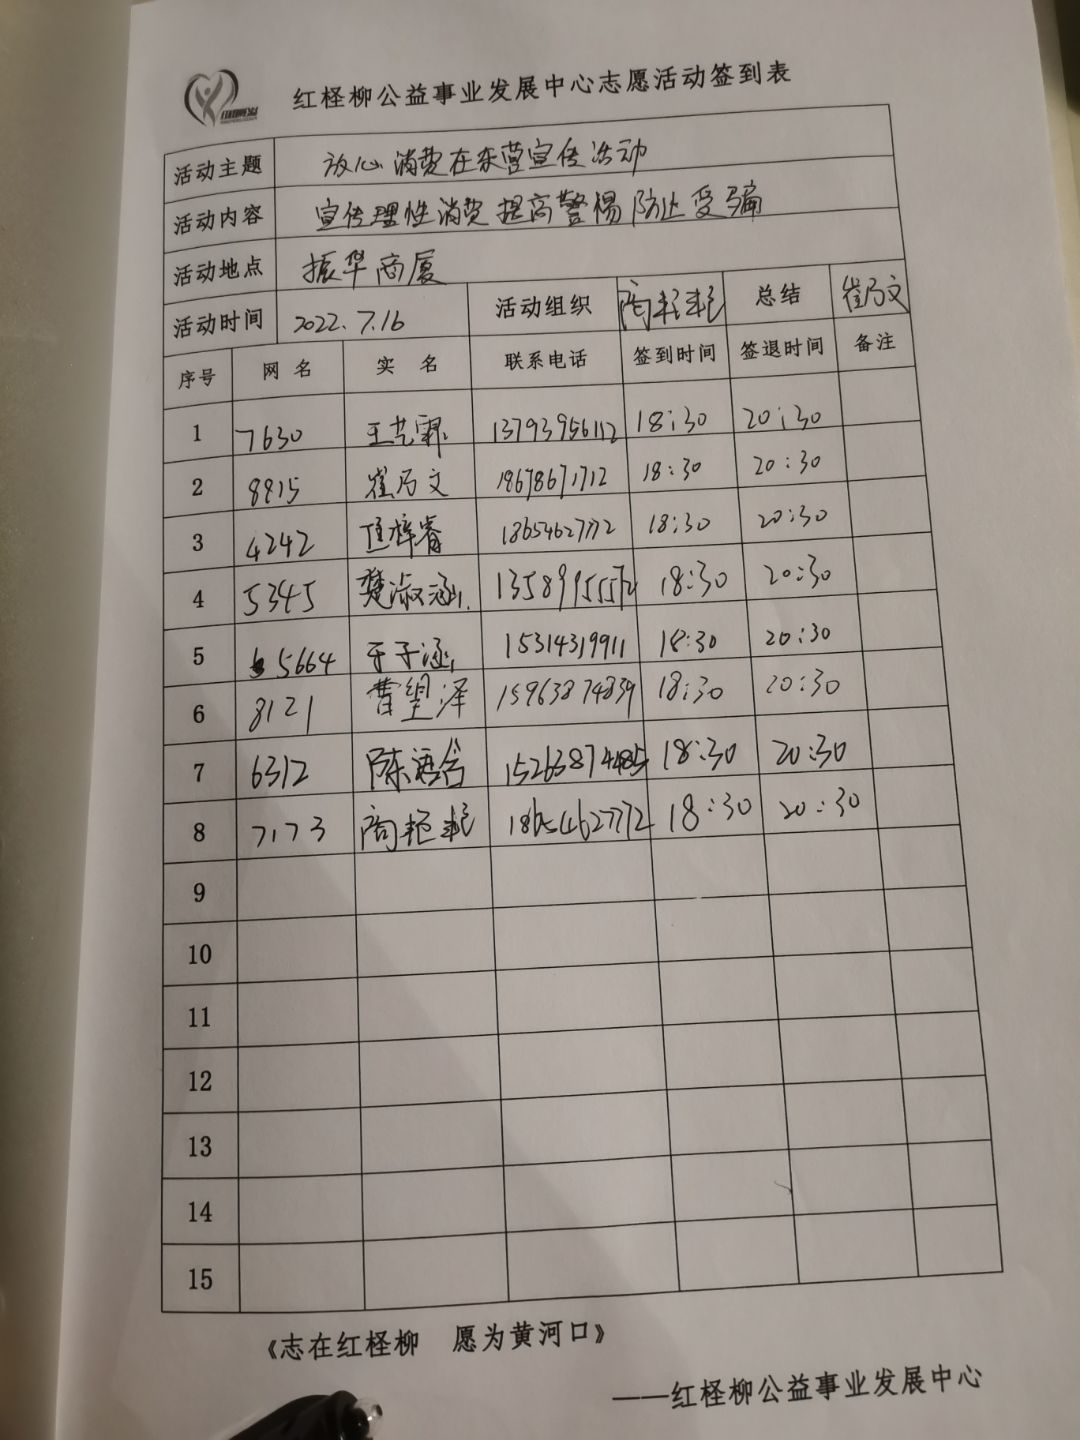 红柽柳公益事业发展中心志愿活动签到表
活动主题 放心消费在东营宣传活动
活动内容 宣传理性消费 提高警惕 防止受骗
活动地点 振华商厦
活动时间 2022.7.16 活动组织 总结 崔乃文
序号 网名 实名 联系电话 签到时间 签退时间 备注
1 7630 王艺霏 13793956112 18:30 20:30
2 8815 崔乃文 18678671712 18:30 20:30
3 4242 梓睿 18654627772 18:30 20:30
4 5345 楚淑涵 13589955572 18:30 20:30
5 5664 于子涵 15314319911 18:30 20:30
6 8121 曹望泽 15963874839 18:30 20:30
7 6312 陈语含 15263874485 18:30 20:30
8 7173 18654627772 18:30 20:30
9
10
11
12
13
14
15
《志在红柽柳 愿为黄河口》
——红柽柳公益事业发展中心